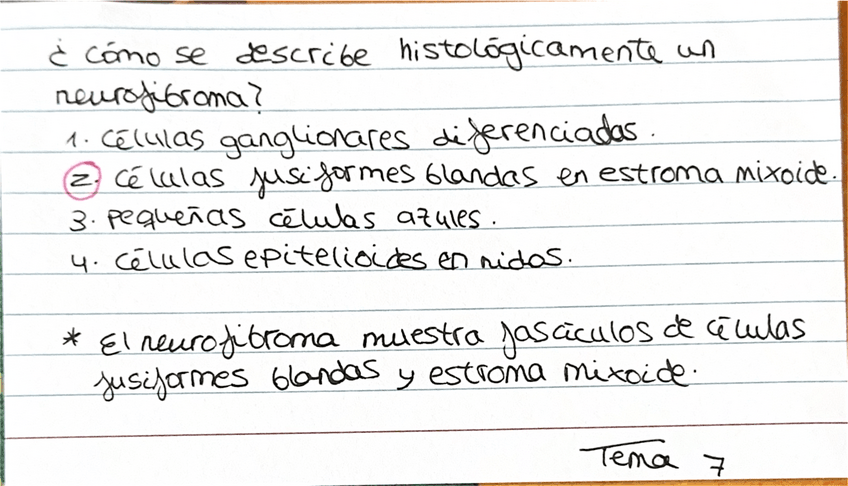 ¿ cómo se describe histológicamente un
neurofibroma?
1. células ganglionares diferenciadas.
2. células fusiformes blandas en estroma mixoide.
3. pequeñas células azules.
4. células epitelioides en nidos.
* El neurofibroma muestra fascículos de células
fusiformes blandas y estroma mixoide.
Tema 7